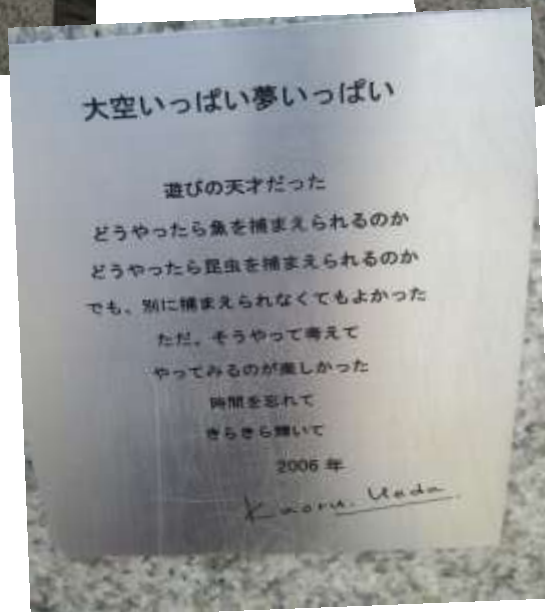 大空いっぱい夢いっぱい
遊びの天才だった
どうやったら魚を捕まえられるのか
どうやったら昆虫を捕まえられるのか
でも、別に捕まえられなくてもよかった
ただ、そうやって考えて
やってみるのが楽しかった
時間を忘れて
きらきら輝いて
2006 年
Kaoru. Ueda